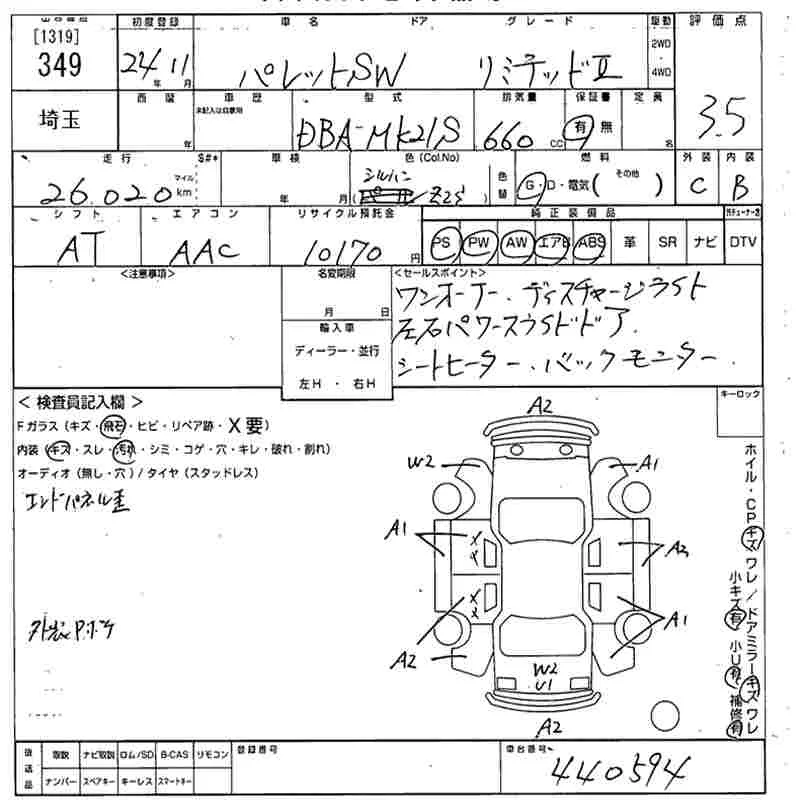 [1319]
349
埼玉
初度登録 車名 ドア グレード 駆動 評価点
24年 11月 パレットSW リミテッドⅡ 2WD・4WD
西暦 車歴 型式 排気量 保証書 定員 3.5
年 未記入は自家用 DBA-MK21S 660 CC 有 無 名
走行 S#* 車検 色(Col.No) 色替 燃料 外装 内装
26,020 マイル km 年 月 シルバー ( Z2S ) G・D・電気( その他 ) C B
シフト エアコン リサイクル預託金 純正装備品
AT AAC 10170円 PS PW AW エアB ABS 革 SR ナビ DTV
<注意事項> 名変期限 <セールスポイント>
月 日 ワンオーナー．ディスチャージライト
輸入車 左右パワースライドドア．
ディーラー・並行 シートヒーター．バックモニター．
左H ・ 右H
＜検査員記入欄＞ キーロック
Fガラス(キズ・飛石・ヒビ・リペア跡・X要)
内装(キズ・スレ・汚れ・シミ・コゲ・穴・キレ・破れ・割れ)
オーディオ(無し・穴)/タイヤ(スタッドレス)
エンドパネル歪
A2
W2 A1
A1 XX A2
XX
A2 A1
W2
U1
A2
ホイル・CPキズ ワレ/ドアミラーキズ ワレ
小キズ有 小U有 補修有
後送品 取説 ナビ取説 ロム/SD B-CAS リモコン 登録番号 車台番号
ナンバー スペアキー キーレス スマートキー 440594